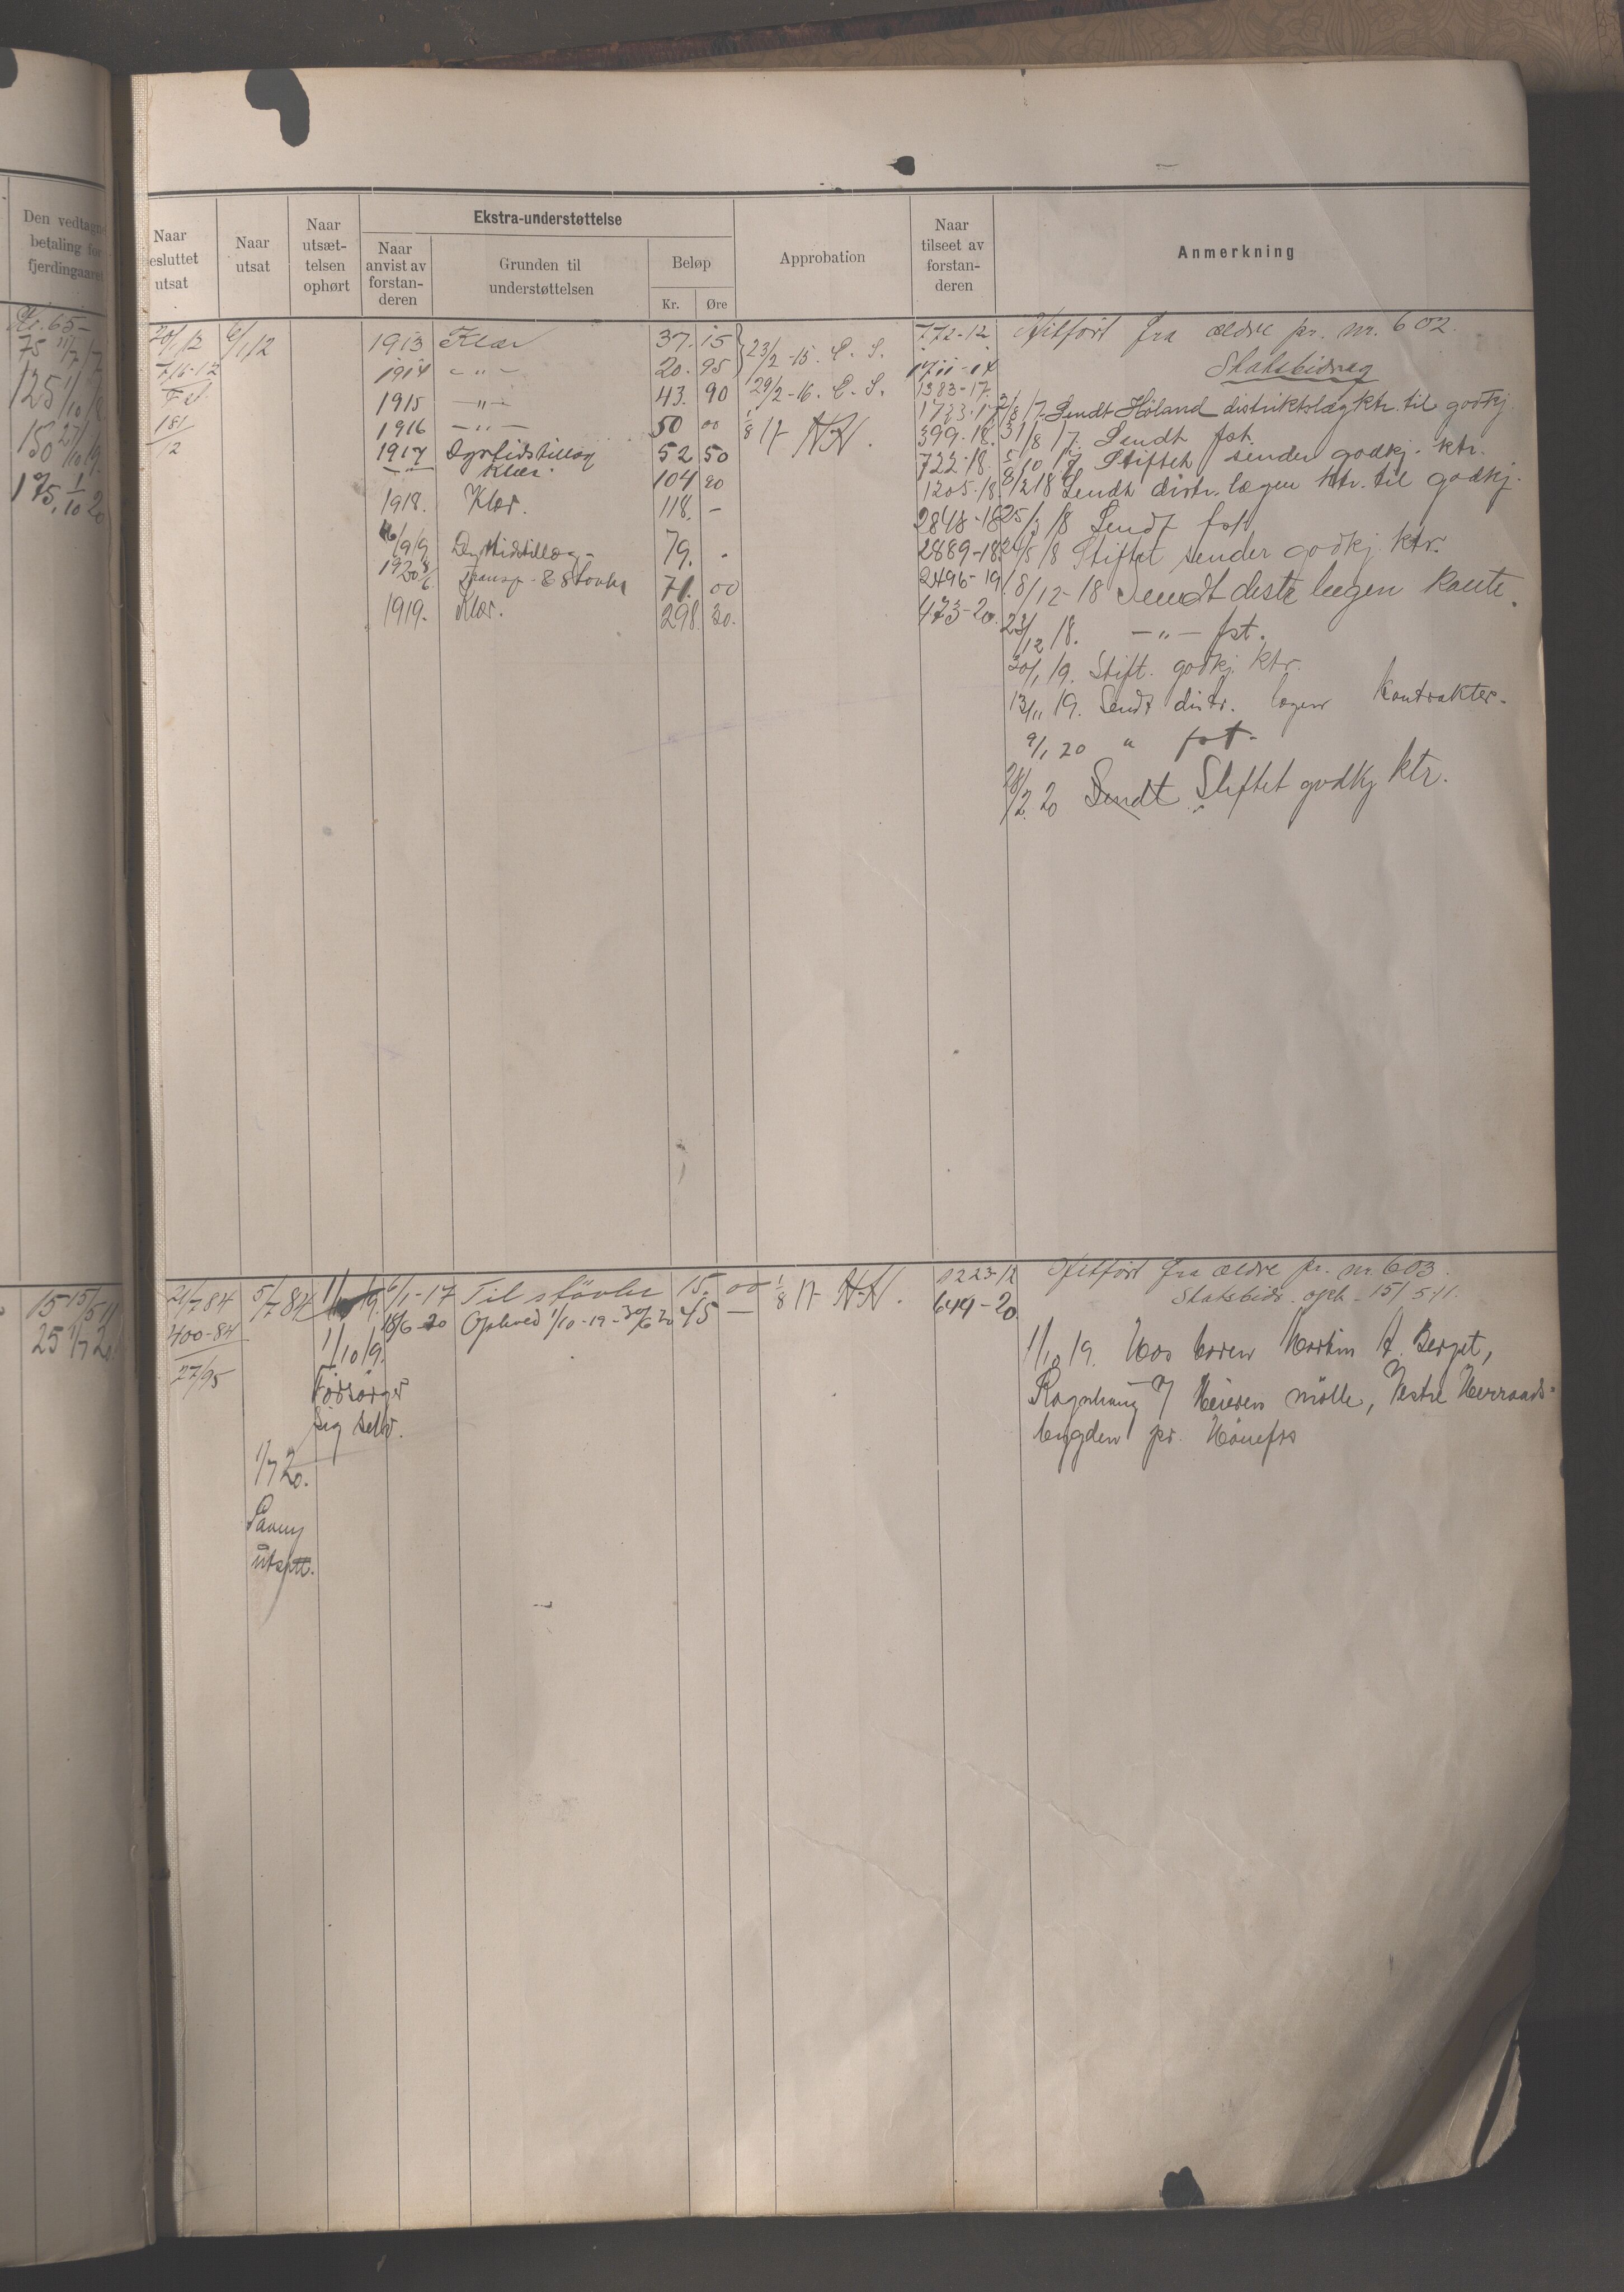 Den vedtagne
betaling for
fjerdingaaret
Naar
esluttet
utsat
Naar
utsat
Naar
utsæt-
telsen
ophørt
Ekstra-understøttelse
Naar
anvist av
forstan-
deren
Grunden til
understøttelsen
Beløp
Kr. Øre
Approbation
Naar
tilseet av
forstan-
deren
Anmerkning
Kr. 65-
75 11/7 17
125 1/10 18
150 27/10 19
175, 1/10 20
20/1 12
7/6-12
181/12
6/1 12
1913 Klær 37. 15
1914 - " - 20. 95
1915 - " - 43. 90
1916 - " - 50 00
1917 Dyrtidstillæg 52 50
- " - Klær. 104 20
1918. Klær. 118. -
16/9 19 Dyrtidstillæg - 79. .
1920 8/6 Transp. & Støvler 71. 00
1919. Klær. 298. 30.
23/2-15. C. S.
29/2-16. C. S.
1/8 17 HH.
772-12
1711-14
1383-17.
1733-17
399-18.
722-18.
1205-18.
2848-18
2889-18
2496-19
473-20.
fra ældre pr. nr. 602.
Statsbidrag
2/8 17. Sendt Höland distriktslæg ktr. til godkj.
31/8 17. Sendt fst.
5/10 17 Stiftet sender godkj. ktr.
6/2 18 Sendt distr. lægen ktr. til godkj.
25/3 18 Sendt fst.
24/5 18 Stiftet sender godkj ktr.
8/12-18 Sendt distr lægen
23/12 18. - " - fst.
20/1 19. Stift. godkj. ktr.
13/11 19. Sendt distr. lægen kontrakter.
9/1 20 " fst.
28/2 20 Sendt Stiftet godkj ktr.
15 15/5 11
25 1/7 20
21/7 84
400-84
27/95
5/7 84
1/10 19.
1/10 19.
Forsørger
sig selv.
1/7 20.
Paany
utsatt.
6/1-17 Til støvler 15. 00
18/6-20 Ophold 1/10-19-30/6 20 45 -
1/8 17 HH.
1223-12
644-20
fra ældre pr. nr. 603.
Statsbidr. oph. 15/5 11.
1/10 19. Hos broren Martin A. Berget,
mølle, Vestre
bygden pr. Hønefos